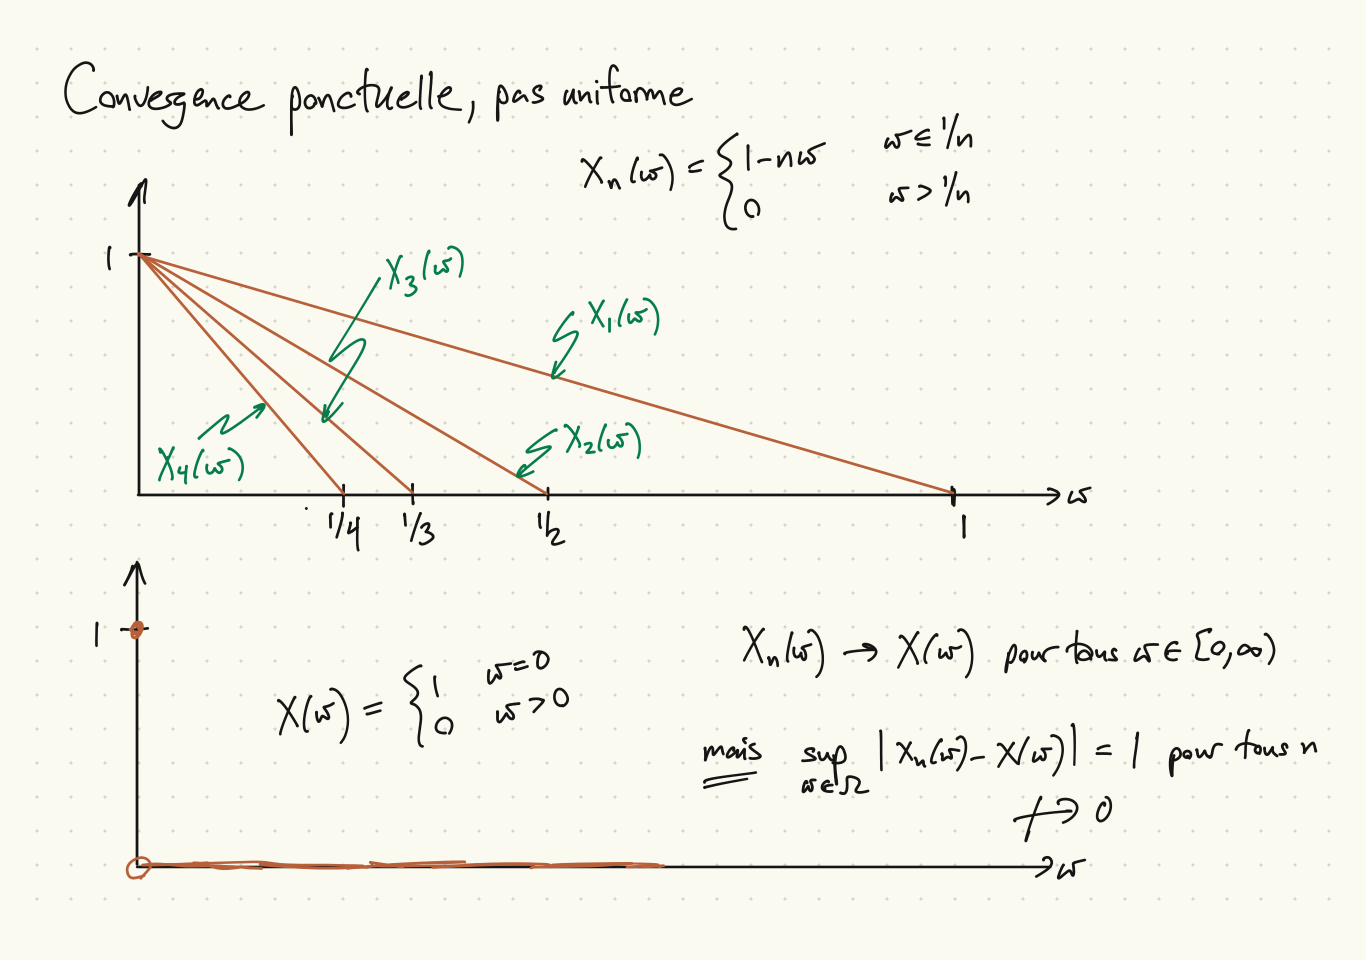 Convergence ponctuelle, pas uniforme
Xn(ω) = { 1-nω   ω ≤ 1/n
0   ω > 1/n
1
X3(ω)
X1(ω)
X2(ω)
X4(ω)
ω
1/4 1/3 1/2 1
1
X(ω) = { 1   ω=0
0   ω>0
Xn(ω) → X(ω) pour tous ω ∈ [0,∞)
mais sup |Xn(ω) - X(ω)| = 1 pour tous n
ω∈Ω
↛ 0
ω